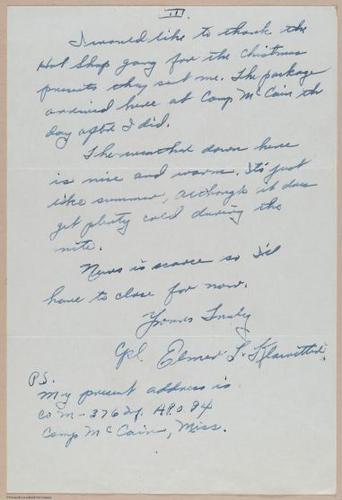 II.
I would like to thank the
Hot Shop gang for the Chistmas
presents they sent me. The package
arrived here at Camp McCain the
day after I did.
The weather down here
is nice and warm. It's just
like summer, although it does
get plenty cold during the
nite.
News is scarce so I'll
have to close for now.
Yours Truly
Cpl. Elmer L. Klawitter
PS.
My present address is
Co M-376 Inf. A.P.O 94
Camp McCain, Miss.